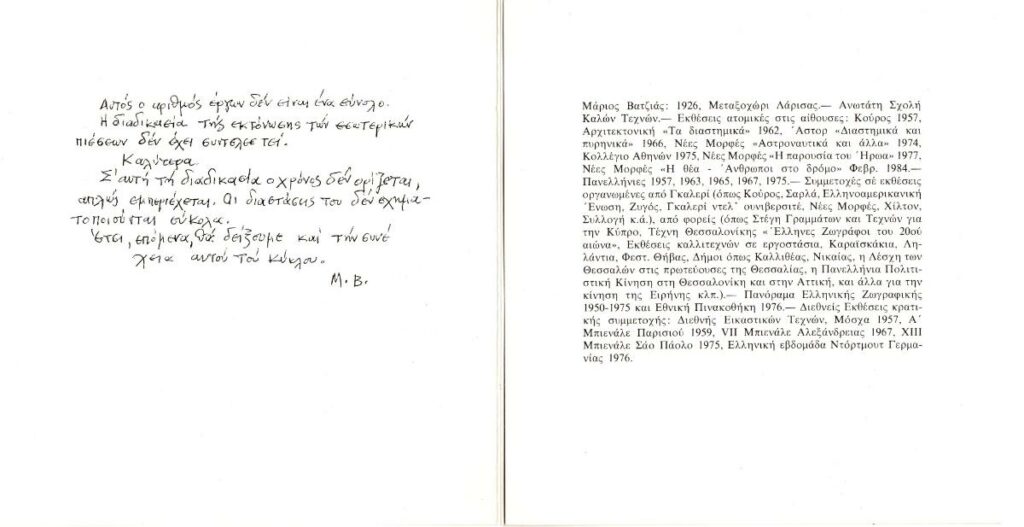 Αυτός ο αριθμός έργων δέν είναι ένα σύνολο.
Η διαδικασία τής εκτόνωσης τών εσωτερικών
πιέσεων δέν έχει συντελεστεί.
Καλύτερα.
Σ'αυτή τή διαδικασία ο χρόνος δέν ορίζεται,
απλώς εμπεριέχεται. Οι διαστάσεις του δέν σχημα-
τοποιούνται εύκολα.
Έτσι, επόμενα, θά δείξουμε καί τήν συνέ
χεια αυτού τού κύκλου.
Μ.Β.
Μάριος Βατζιάς: 1926, Μεταξοχώρι Λάρισας.— Ανωτάτη Σχολή
Καλών Τεχνών.— Εκθέσεις ατομικές στις αίθουσες: Κούρος 1957,
Αρχιτεκτονική «Τα διαστημικά» 1962, Άστορ «Διαστημικά και
πυρηνικά» 1966, Νέες Μορφές «Αστροναυτικά και άλλα» 1974,
Κολλέγιο Αθηνών 1975, Νέες Μορφές «Η παρουσία του Ήρωα» 1977,
Νέες Μορφές «Η θέα - Άνθρωποι στο δρόμο» Φεβρ. 1984.—
Πανελλήνιες 1957, 1963, 1965, 1967, 1975.— Συμμετοχές σέ εκθέσεις
οργανωμένες από Γκαλερί (όπως Κούρος, Σαρλά, Ελληνοαμερικανική
Ένωση, Ζυγός, Γκαλερί ντελ' ουνιβερσιτέ, Νέες Μορφές, Χίλτον,
Συλλογή κ.ά.), από φορείς (όπως Στέγη Γραμμάτων και Τεχνών για
την Κύπρο, Τέχνη Θεσσαλονίκης «Έλληνες Ζωγράφοι του 20ού
αιώνα», Εκθέσεις καλλιτεχνών σε εργοστάσια, Καραϊσκάκια, Λη-
λάντια, Φεστ. Θήβας, Δήμοι όπως Καλλιθέας, Νικαίας, η Λέσχη των
Θεσσαλών στις πρωτεύουσες της Θεσσαλίας, η Πανελλήνια Πολιτι-
στική Κίνηση στη Θεσσαλονίκη και στην Αττική, και άλλα για την
κίνηση της Ειρήνης κλπ.).— Πανόραμα Ελληνικής Ζωγραφικής
1950-1975 και Εθνική Πινακοθήκη 1976.— Διεθνείς Εκθέσεις κρατι-
κής συμμετοχής: Διεθνής Εικαστικών Τεχνών, Μόσχα 1957, Α΄
Μπιενάλε Παρισιού 1959, VII Μπιενάλε Αλεξάνδρειας 1967, XIII
Μπιενάλε Σάο Πάολο 1975, Ελληνική εβδομάδα Ντόρτμουτ Γερμα-
νίας 1976.